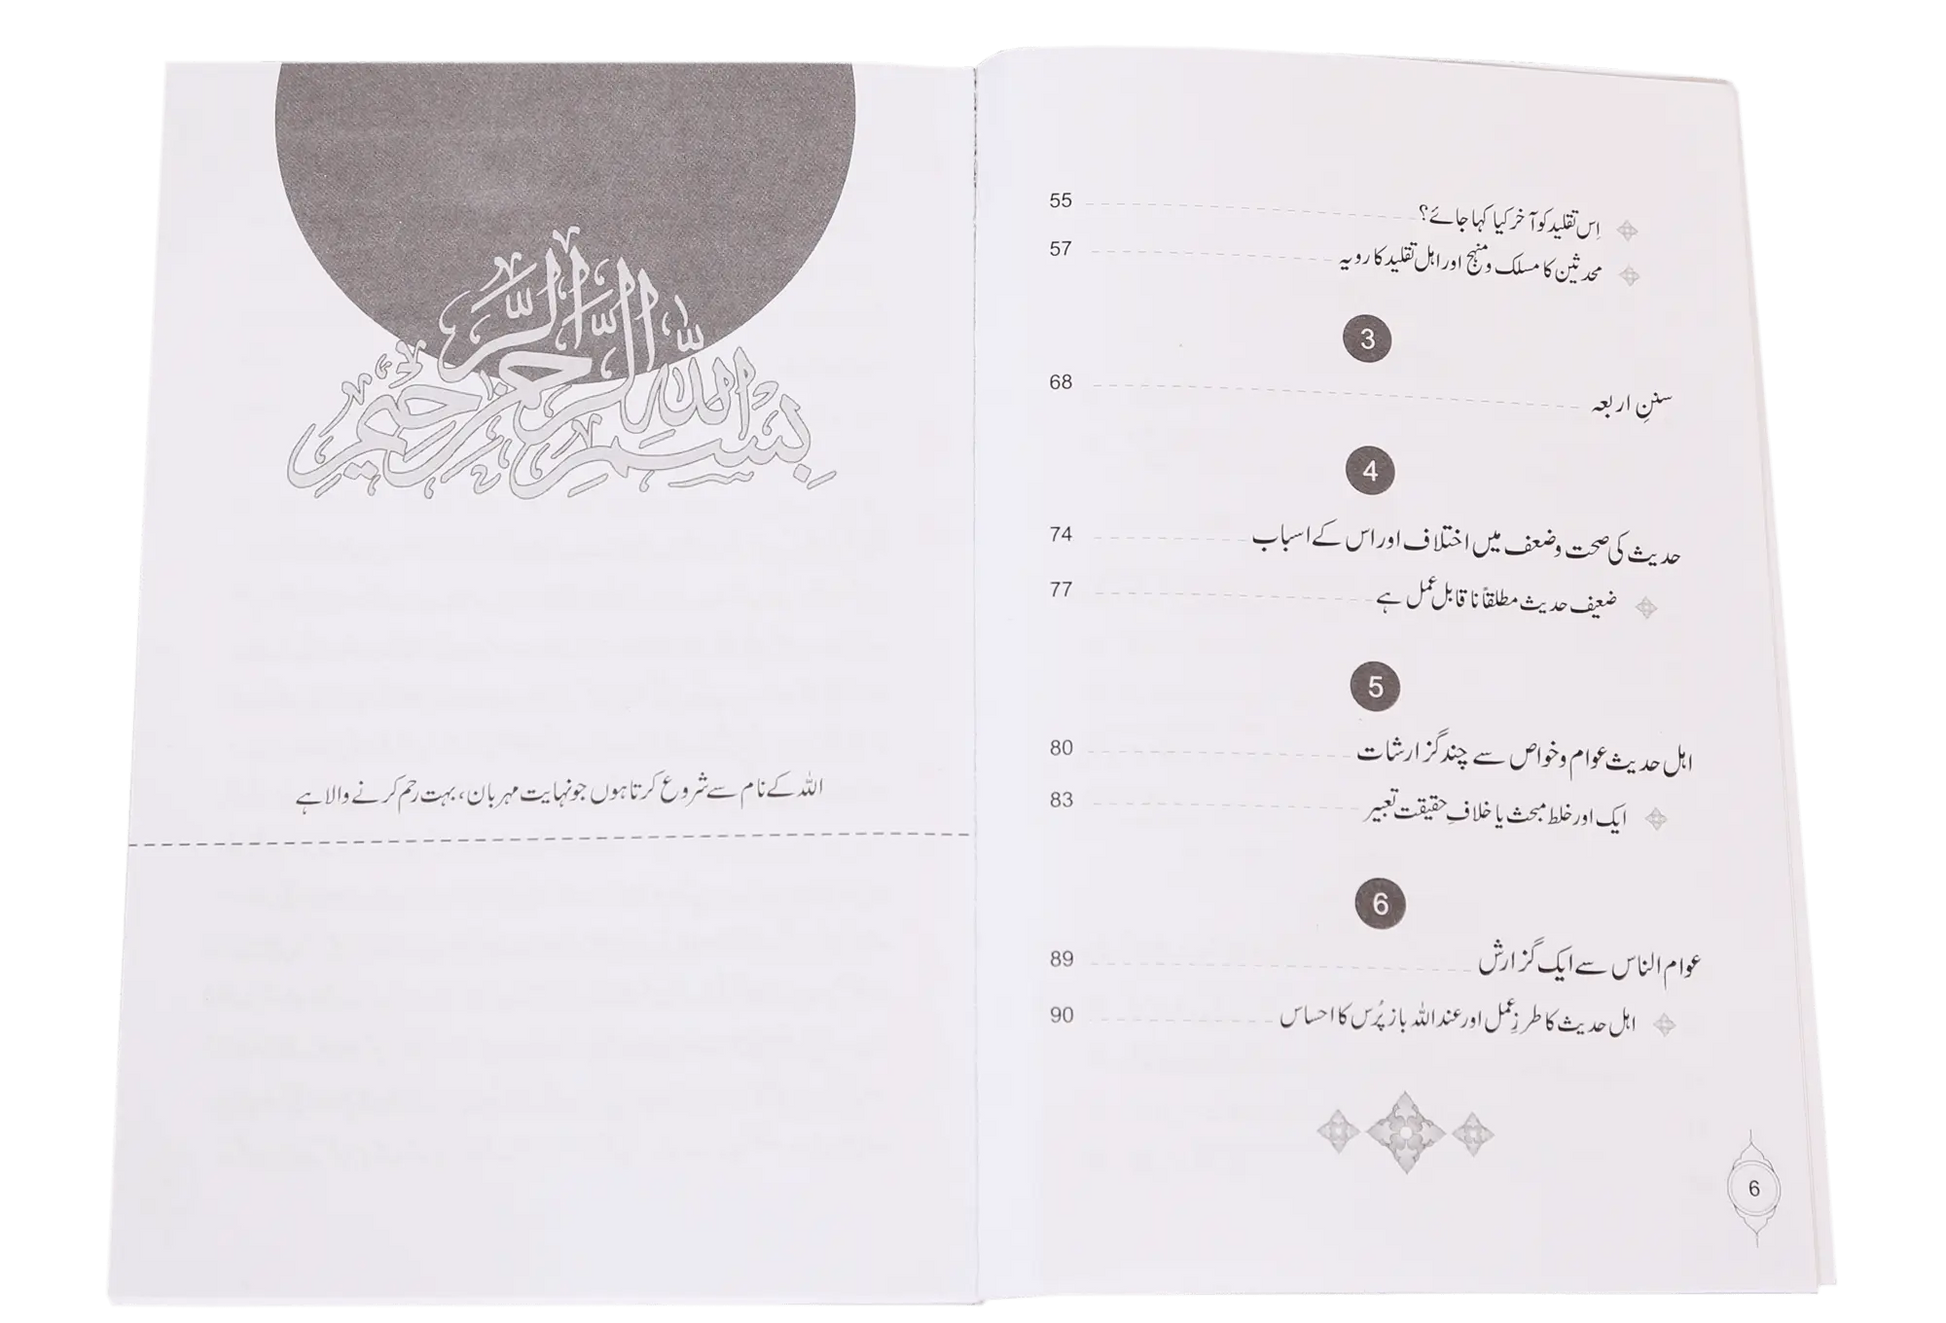 اِس تقلید کو آخر کیا کہا جائے؟ 55
محدثین کا مسلک و منہج اور اہل تقلید کا رویہ 57
3
سننِ اربعہ 68
4
حدیث کی صحت و ضعف میں اختلاف اور اس کے اسباب 74
ضعیف حدیث مطلقاً ناقابل عمل ہے 77
5
اہل حدیث عوام و خواص سے چند گزارشات 80
ایک اور خلط مبحث یا خلافِ حقیقت تعبیر 83
6
عوام الناس سے ایک گزارش 89
اہل حدیث کا طرزِ عمل اور عند اللہ باز پُرس کا احساس 90
6
بِسْمِ اللّٰهِ الرَّحْمٰنِ الرَّحِيْمِ
اللہ کے نام سے شروع کرتا ہوں جو نہایت مہربان، بہت رحم کرنے والا ہے